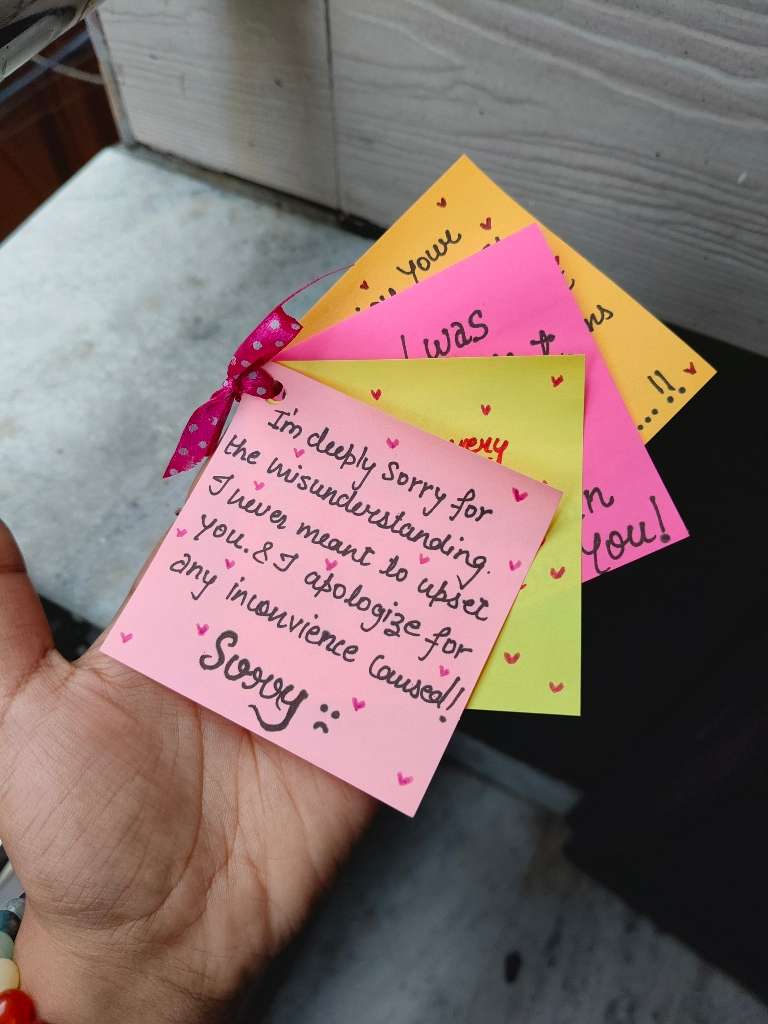 I'm deeply Sorry for
the misunderstanding.
I never meant to upset
you. & I apologize for
any inconvience Caused!!
Sorry :(
very
I was
you!
your
...!!